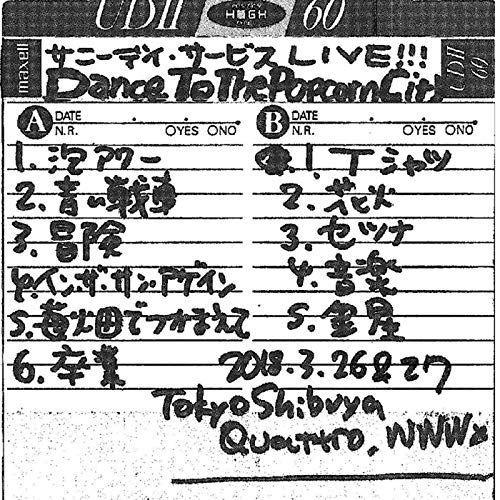 UDII HIGH 60
maxell サニーデイ・サービス LIVE!!! UDII 60
Dance To The Popcorn City
A DATE . . B DATE . .
N.R. OYES ONO N.R. OYES ONO
1. 泡アワー
2. 青い戦車
3. 冒険
4. イン・ザ・サン・アゲイン
5. 苺畑でつかまえて
6. 卒業
1. Tシャツ
2. 花火
3. セツナ
4. 音楽
5. 金星
2018.3.26&27
Tokyo Shibuya
Quattro, WWWX